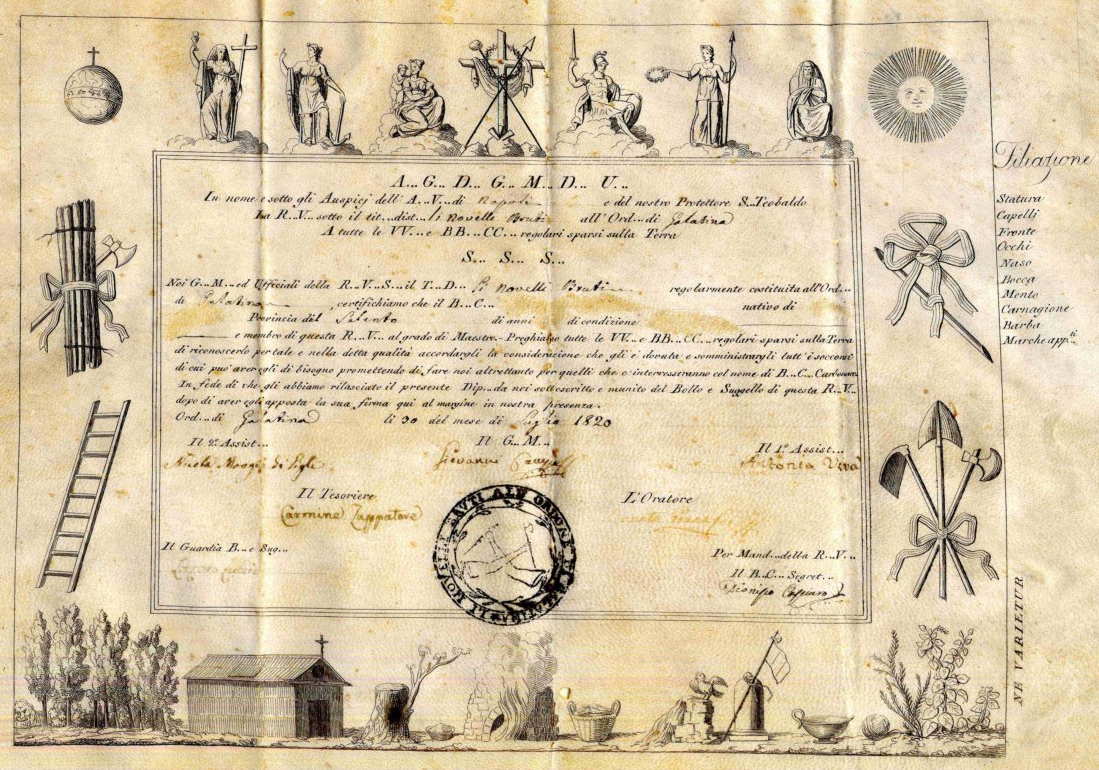 A... G... D... G... M... D... U...
In nome e sotto gli Auspicj dell' A...V...di Napoli e del nostro Protettore S...Teobaldo
La R...V...sotto il tit...dist... li Novelli Bruti all'Ord...di Galatina
A tutte le VV... e BB...CC... regolari sparsi sulla Terra
S... S... S...
Noi G...M...ed Ufficiali della R...V...S...il T...D... li Novelli Bruti regolarmente costituita all'Ord...
di Galatina certifichiamo che il B...C... nativo di
Provincia di Salento di anni di condizione
e membro di questa R...V... al grado di Maestro.- Preghiamo tutte le VV... e BB...CC...regolari sparsi sulla Terra
di riconoscerlo per tale e nella detta qualità accordargli la considerazione che gli è dovuta e somministrargli tutt'i soccorsi
di cui può aver egli di bisogno promettendo di fare noi altrettanto per quelli che c'interesseranno col nome di B...C... Carbonaro
In fede di che gli abbiamo rilasciato il presente Dip...da noi sottoscritto e munito del Bollo e Suggello di questa R...V...
dopo di aver egli apposta la sua firma qui al margine in nostra presenza.
Ord...di Galatina li 30 del mese di Luglio 1820
Il 2º Assist... Il G...M... Il 1º Assist...
Giovanni
Il Tesoriere L'Oratore
Carmine Zappatore
Il Guardia B...e Sug... Per Mand...della R...V...
Il B...C... Segret...
LI NOVELLI BRUTI ALL ORDINE DI GALATINA
Filiazione
Statura
Capelli
Fronte
Occhi
Naso
Bocca
Mento
Carnagione
Barba
Marche app.ti
NE VARIETUR